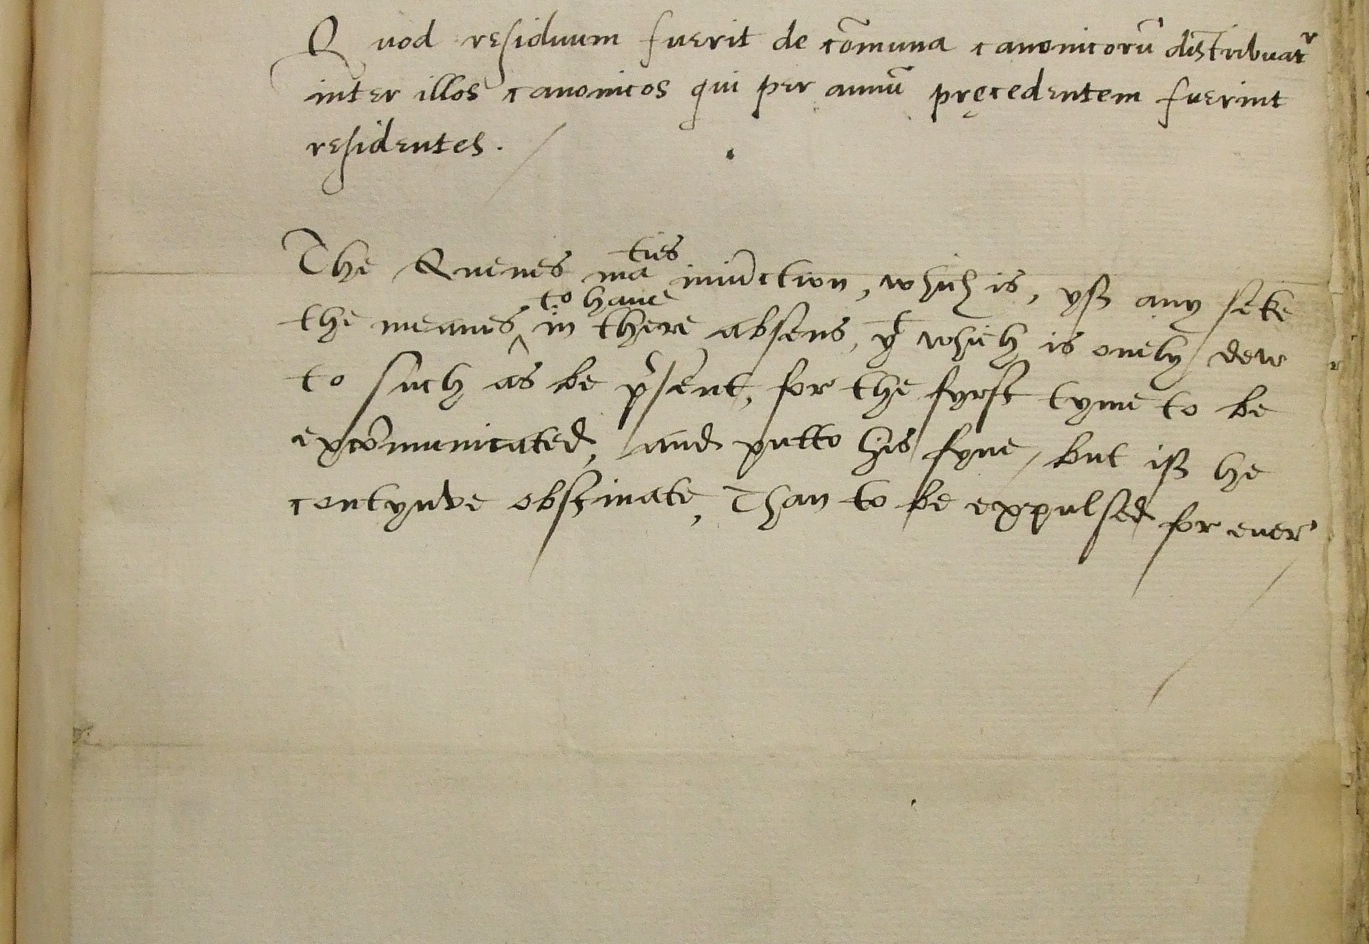 Quod residuum fuerit de cōmuna canonicorū distribuatʳ
inter illos canonicos qui per annū pręcedentem fuerint
residentes.
The Quenes maᵗⁱᵉˢ iniūction, which is, yff any seke
the meanes ‸ to haue in there absens, yᵗ which is onely dew
to such as be p̄sent, for the fyrst tyme to be
excōmunicated, and putto his fyne, but iff he
contynve obstinate, Than to be expulsed for euer